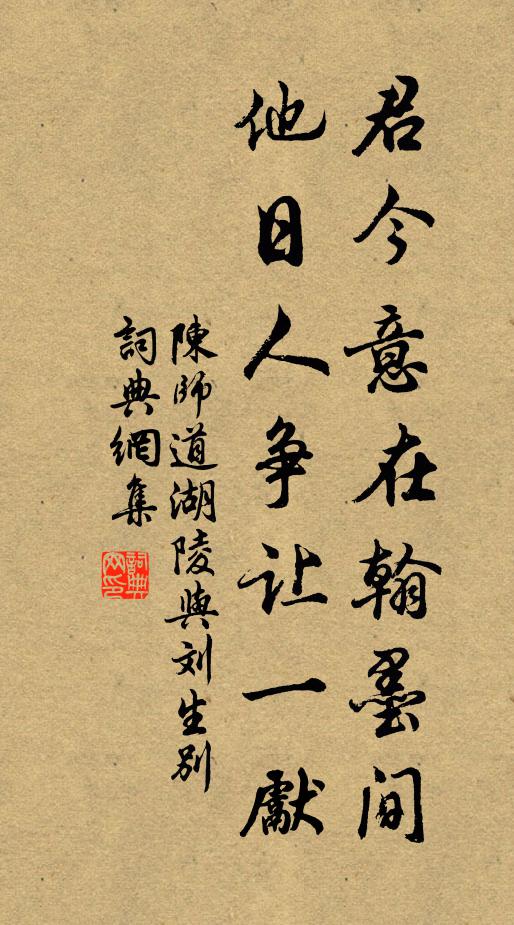 君今意在翰墨间
他日人争让一献
陳師道湖陵與刘生别
詞典網集
詞典网印